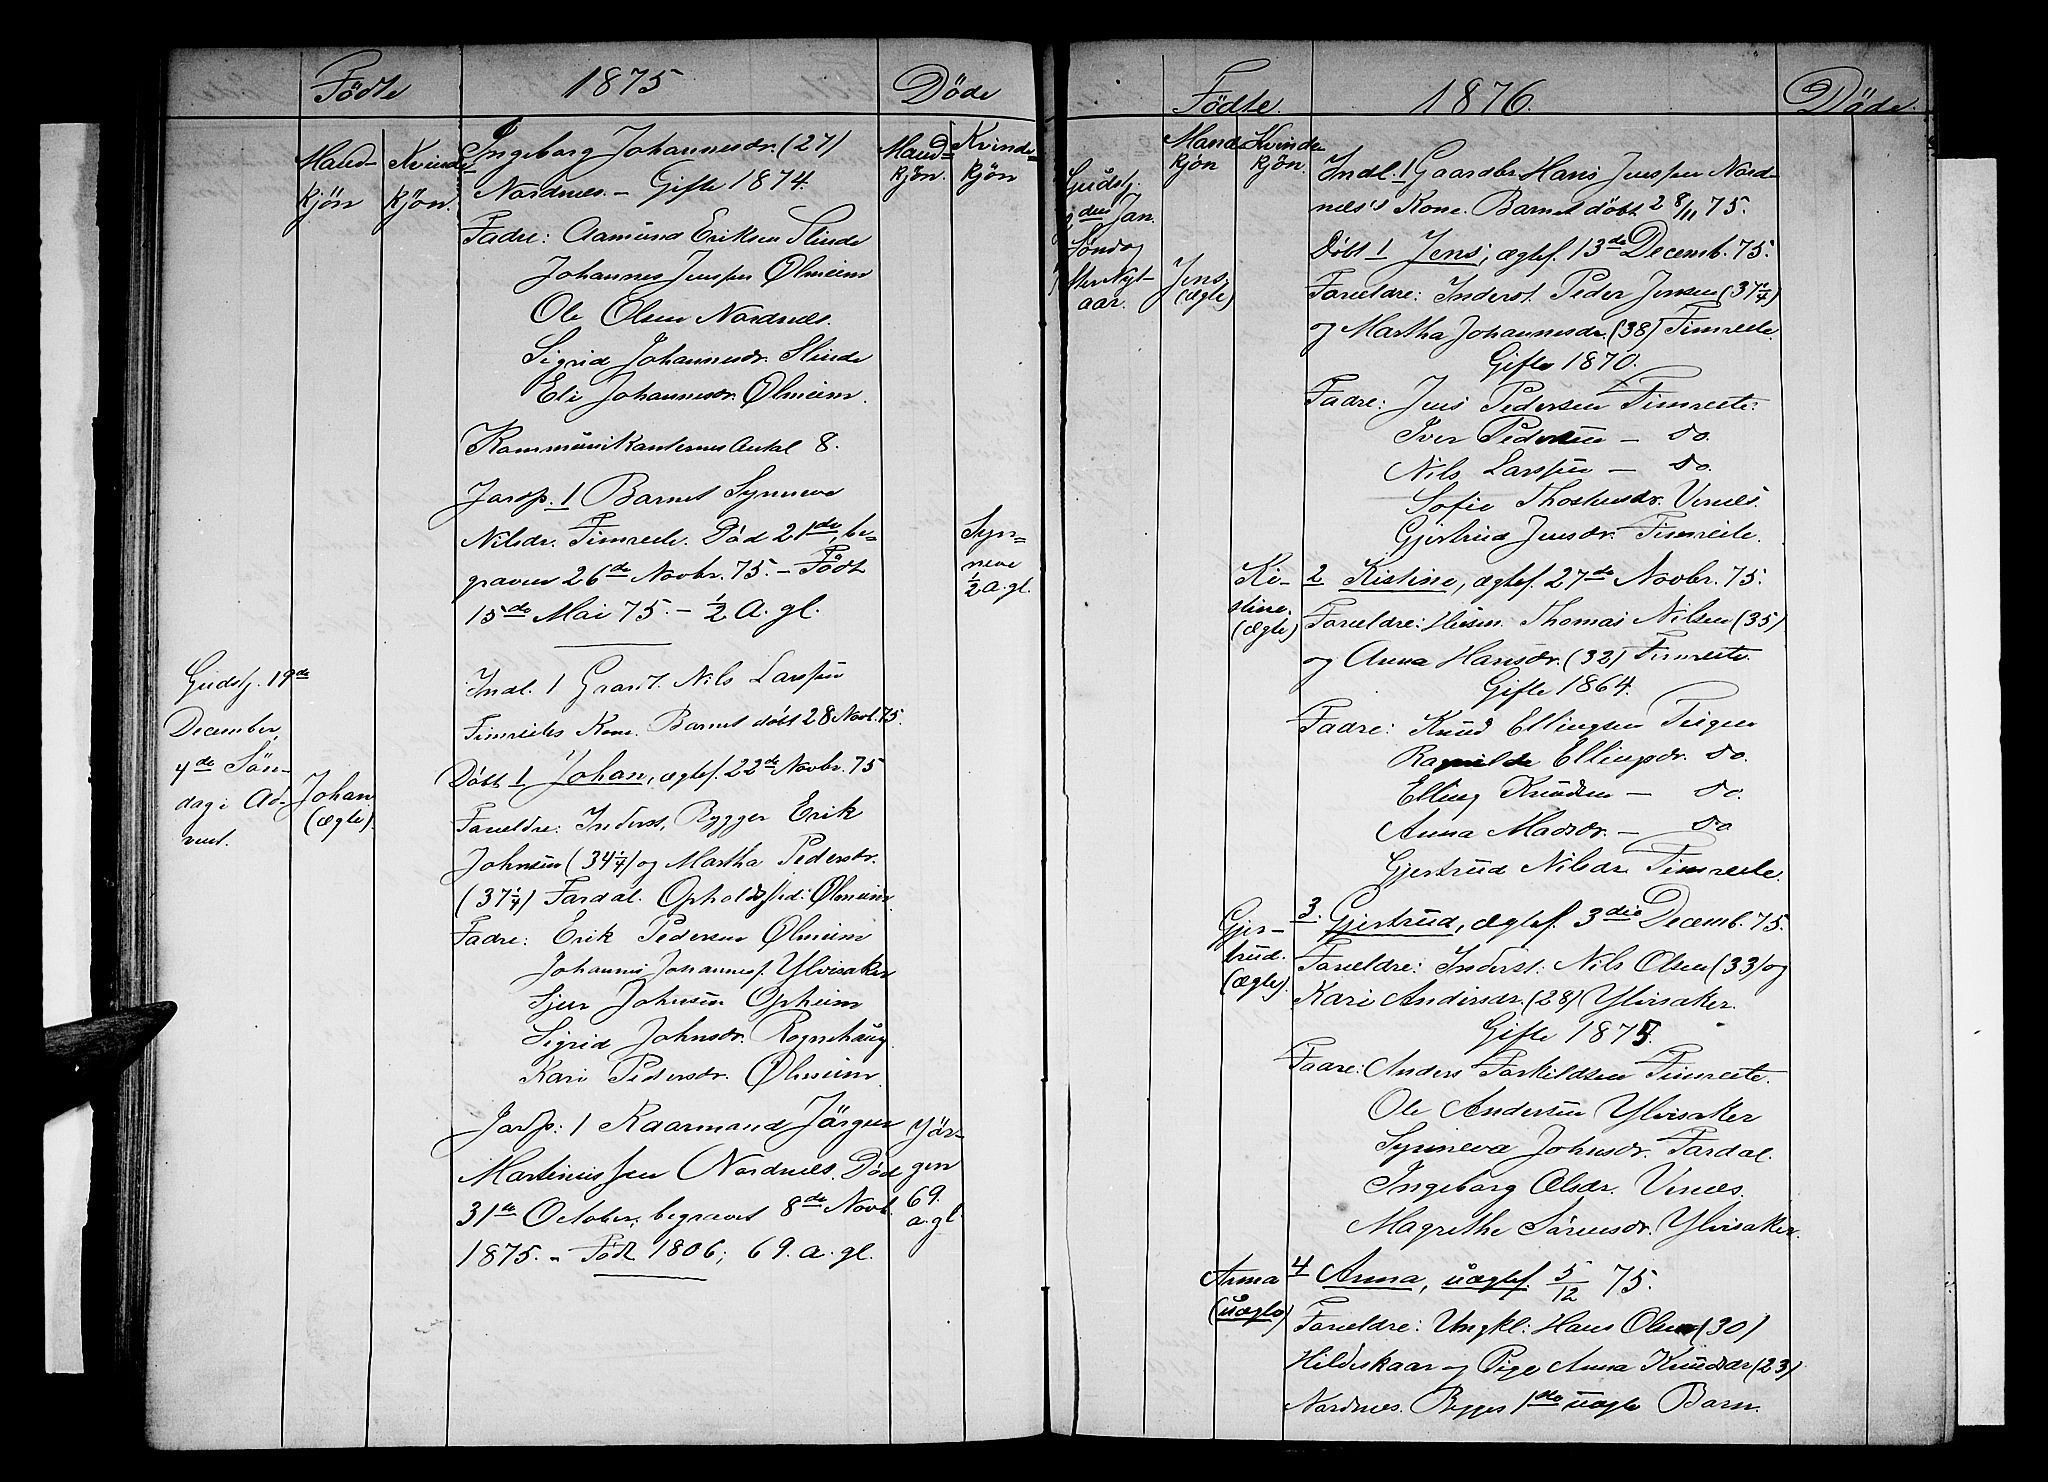 Födte 1875 Döde
Mand- Kvinde-
kjön kjön.
Mand- Kvinde-
kjön. kjön
Ingeborg Johannesdr. (27)
Nordnæs. — Gifte 1874.
Fadre: Aamund Eriksen Slinde
Johannes Jensen Ølmeim
Ole Olsen Nordnæs.
Sigrid Johannesdr. Slinde
Eli Johannesdr. Ølmeim.
Kommunikanternes Antal 8.
Jordp. 1 Barnet Synneva
Nilsdr. Timreite. Död 21de, be-
graven 26de Novbr. 75. — Födt
15de Mai 75. — ½ A. gl.
Syn-
neve
½ a. gl.
Gudstj. 19de
December,
4de Sön-
dag i Ad-
vent.
Johan
(ægte)
Indl. 1 Gaard. Nils Larsen
Timreites Kone. Barnet döbt 28 Novb. 75.
Döbt 1 Johan, ægtef. 22de Novbr. 75
Foreldre: Inderst, Bygger Erik
Johnsen (34¼) og Martha Pedersdr.
(37¼) Fardal. Opholdssted: Ølmeim
Fadre: Erik Pedersen Ølmeim
Johannes Johannesf. Ylvisaker
Sjur Johnsen Opheim
Sigrid Johnsdr. Rognehaug
Kari Pedersdr. Ølmeim.
Jordp: 1 Kaarmand Jörgen
Martinussen Nordnæs. Död
31te October, begravet 8de Novb.
1875. — Födt 1806; 69. a. gl.
Jör-
gen
69.
a. gl
Födte. 1876. Döde.
Mand Kvinde
kjön kjön.
Gudstj.
2den Jan.
Söndag
efter Nyt-
aar.
Jens,
(ægte)
Indl. 1 Gaardbr. Hans Jensen Nord-
næs's Kone. Barnet döbt 28/11 75.
Döbt 1 Jens, ægtef. 13de Decemb. 75.
Foreldre: Inderst. Peder Jensen (37¼)
og Martha Johannesdr. (38) Timreite.
Gifte 1870.
Fadre: Jens Pedersen Timreite.
Iver Pedersen — do.
Nils Larsen — do.
Sofie Thostensdr. Vinæs.
Gjertrud Jensdr. Timreite.
Ki-
stine.
(ægte)
2 Kistine, ægtef. 27de Novbr. 75.
Foreldre: Husm. Thomas Nilsen (35)
og Anna Hansdr. (32) Timreite.
Gifte 1864.
Fadre: Knud Ellingsen
Ragnilde Ellingsdr. do.
Elling Knudsen — do.
Anna Madsdr. — do
Gjertrud Nilsdr. Timreite.
Gjer-
trud.
(ægte)
3. Gjertrud, ægtef. 3die Decemb. 75.
Foreldre: Inderst: Nils Olsen (33) og
Kari Andersdr. (28) Ylvisaker.
Gifte 1875.
Fadre: Anders Torkildsen Timreite.
Ole Andersen Ylvisaker
Synneva Johnsdr. Fardal.
Ingeborg Olsdr. Vinæs.
Magrethe Sörensdr. Ylvisaker.
Anna
(uægte)
4 Anna, uægtef. 5/12 75.
Foreldre: Ungkl: Hans Olsen (30)
Hildeskaar og Pige Anna Knudsdr (23)
Nordnæs. Begges 1ste uægte Barn.